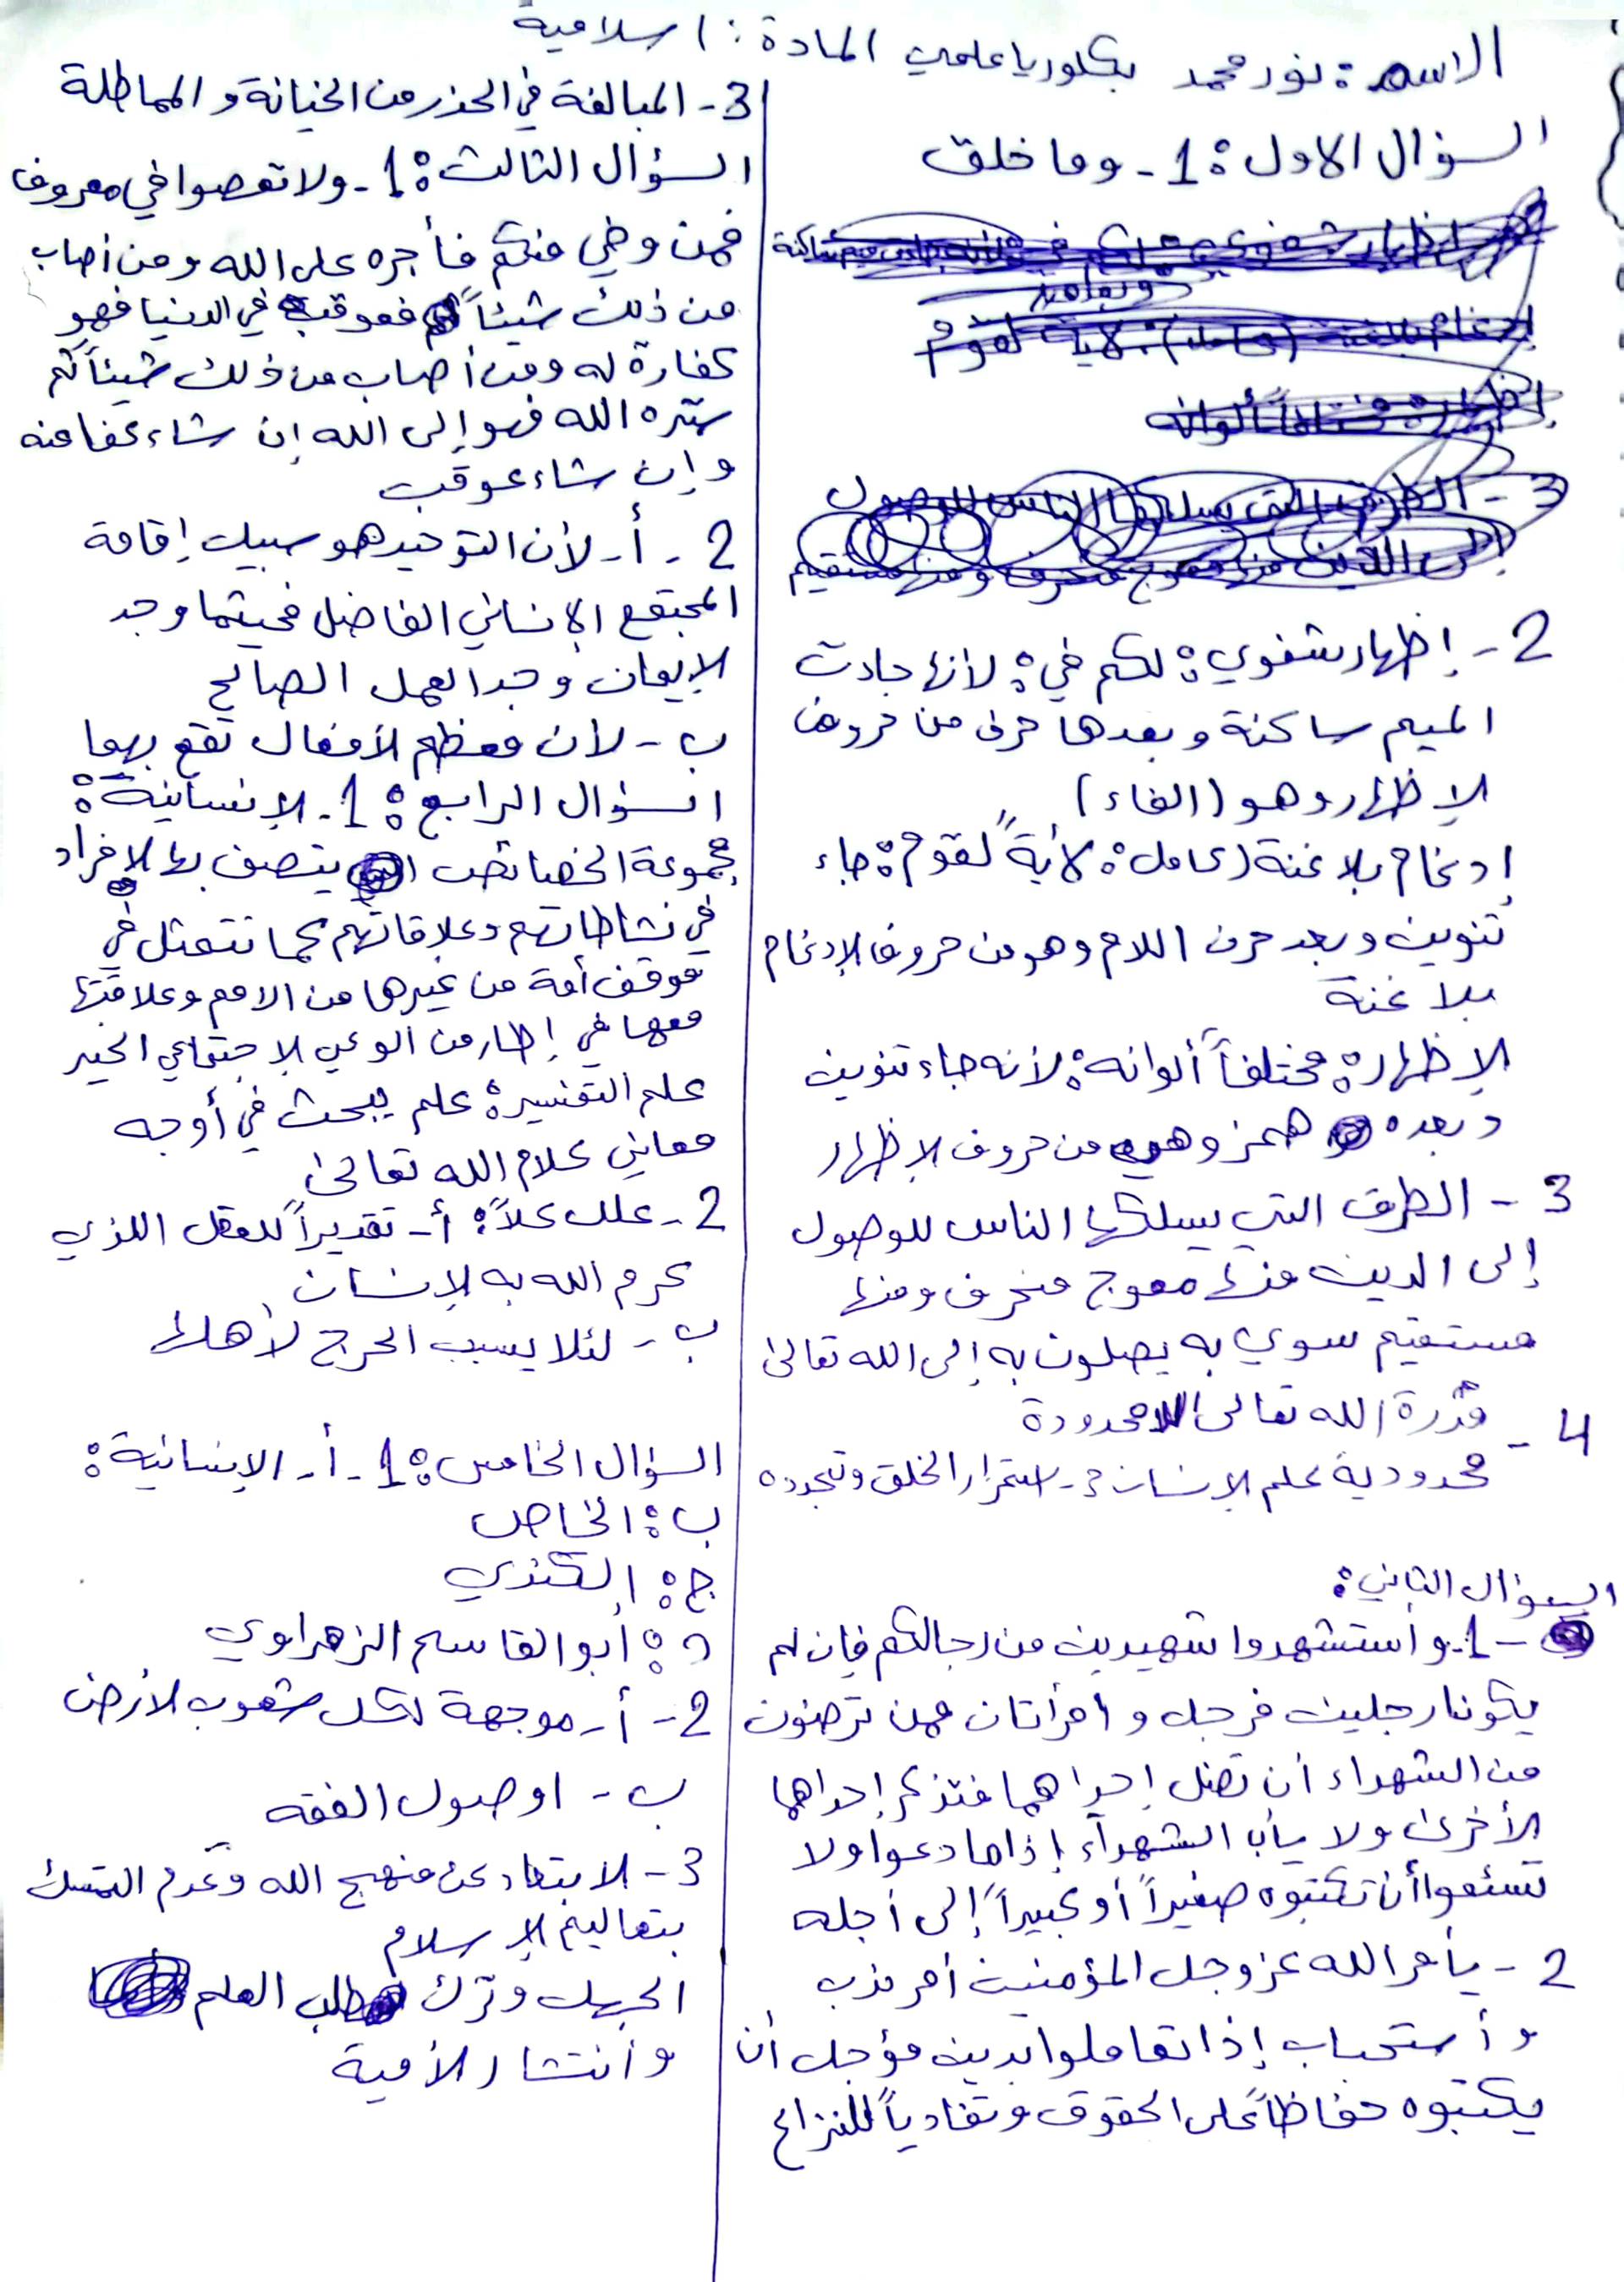 الاسم: نور محمد بكلوريا علمي المادة: اسلامية
السؤال الاول: 1- وما خلق
2- إظهار شفوي: لكم في: لأنها جاءت
الميم ساكنة وبعدها حرف من حروف
الإظهار وهو (الفاء)
إدغام بلا غنة (كامل: لأيةً لقوم: جاء
تنوين وبعد حرف اللام وهو من حروف الإدغام
بلا غنة
الإظهار: مختلفاً ألوانه: لأنه جاء تنوين
وبعده همز وهي من حروف الإظهار
3- الطرق التي يسلكها الناس للوصول
إلى الدين منها معوج منحرف ومنها
مستقيم سوي به يصلون به إلى الله تعالى
4- قدرة الله تعالى اللامحدودة
محدودية علم الإنسان 3- استمرار الخلق وتجدده
السؤال الثاني:
1- وأستشهدوا شهيدين من رجالكم فإن لم
يكونا رجلين فرجل وامرأتان ممن ترضون
من الشهداء أن تضل إحداهما فتذكر إحداهما
الأخرى ولا يأب الشهدآء إذا ما دعوا ولا
تسئموا أن تكتبوه صغيراً أو كبيراً إلى أجله
2- يأمر الله عز وجل المؤمنين أمر ندب
وأستحباب إذا تعاملوا بدين مؤجل أن
يكتبوه حفاظاً على الحقوق وتفادياً للنزاع
3- المبالغة في الحذر من الخيانة والمماطلة
السؤال الثالث: 1- ولا تعصوا في معروف
فمن وفي منكم فأجره على الله ومن أصاب
من ذلك شيئاً فعوقب في الدنيا فهو
كفارة له ومن أصاب من ذلك شيئاً ثم
ستره الله فهو إلى الله إن شاء عفا عنه
وإن شاء عوقب
2- أ- لأن التوحيد هو سبيل إقامة
المجتمع الإنساني الفاضل فحيثما وجد
الإيمان وجد العمل الصالح
ب- لأن معظم الأفعال تقع بهما
السؤال الرابع: 1- الإنسانية:
مجموعة الخصائص يتصف بها الأفراد
في نشاطاتهم وعلاقاتهم كما تتمثل في
موقف أمة من غيرها من الامم وعلاقتها
معها في إطار من الوعي الإجتماعي الخير
علم التفسير: علم يبحث في أوجه
معاني كلام الله تعالى
2- علل كلاً: أ- تقديراً للعقل اللذي
كرم الله به الإنسان
ب- لئلا يسبب الحرج لأهلها
السؤال الخامس: 1- أ- الإنسانية:
ب: الخاص
ج: الكندي
د: أبو القاسم الزهراوي
2- أ- موجهة لكل شعوب الأرض
ب- اوصول الفقه
3- الابتعاد عن منهج الله وعدم التمسك
بتعاليم الإسلام
الجهل وترك طلب العلم
وأنتشار الأمية